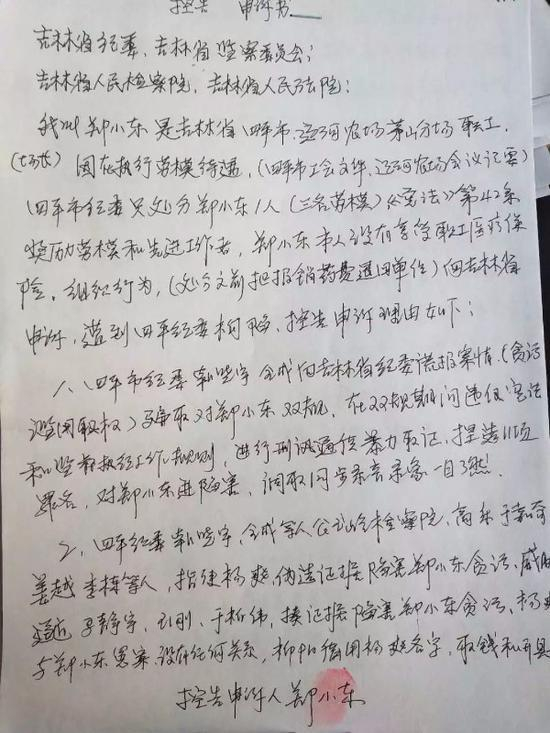 控告 申诉书
吉林省纪委、吉林省监察委员会；
吉林省人民检察院，吉林省人民法院：
我叫郑小东是吉林省四平市，辽河农场第4分场职工，
(场长) 因在执行劳模待遇，(四平市工会文件，辽河农场会议记要)
四平市纪委只处分郑小东1人(三名劳模)《宪法》第42条
奖励劳模和先进工作者，郑小东本人没有享受职工医疗保
险，组织行为，(处分文前把报销药费退回单位) 向吉林省
申诉，遭到四平纪委构陷、控告申诉理由如下：
1、四平市纪委 全成向吉林省纪委谎报案情，(贪污
滥用职权) 骗取对郑小东双规，在双规期间违反宪法
和监督执纪工作规则，进行刑讯逼供暴力取证，捏造11项
罪名，对郑小东进陷害，调取同步录音录象一目了然。
2、四平纪委 全成等人 检察院，
姜越 李栋等人，指使杨爽，伪造证据陷害郑小东贪污，威胁
逼迫 静宇，王刚，于析伟，换证据陷害郑小东贪污，杨爽
与郑小东男案，没有任何关系，柳 借用杨爽名字，取钱和开具
控告申诉人郑小东